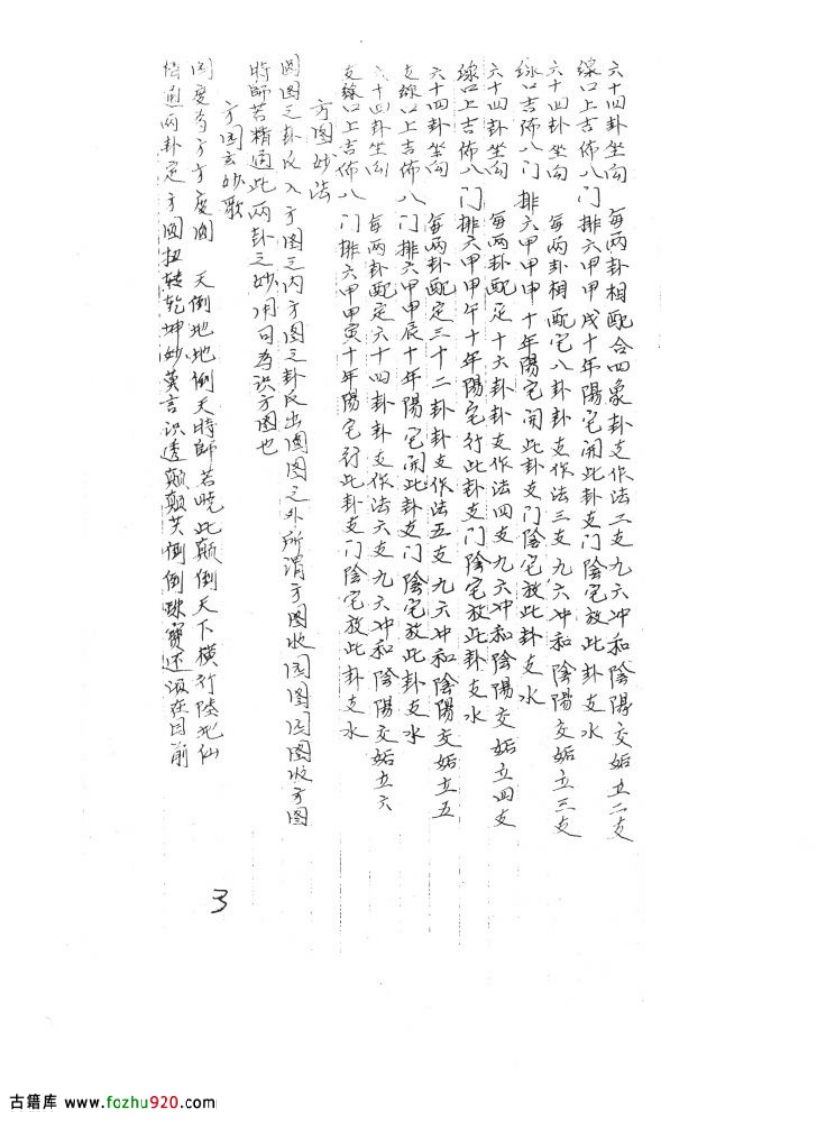 六十四卦坐向 每两卦相配合四象卦支作法二支九六冲和陰陽交姤立二支
線口上吉佈八门排六甲甲戌十年陽宅開此卦支门陰宅放此卦支水
六十四卦坐向 每两卦相配定八卦卦支作法三支九六冲和陰陽交姤立三支
線口吉佈八门排六甲甲申十年陽宅開此卦支门陰宅放此卦支水
六十四卦坐向 每两卦配定十六卦卦支作法四支九六冲和陰陽交姤立四支
線口上吉佈八门排六甲甲午十年陽宅行此卦支门陰宅放此卦支水
六十四卦坐向 每两卦配定三十二卦卦支作法五支九六冲和陰陽交姤立五
支線口上吉佈八门排六甲甲辰十年陽宅開此卦支门陰宅放此卦支水
六十四卦坐向 每两卦配定六十四卦卦支作法六支九六冲和陰陽交姤立六
支線口上吉佈八门排六甲甲寅十年陽宅行此卦支门陰宅放此卦支水
方图妙法
圆图之卦反入方图之内方图之卦反出圆图之外所谓方图收圆图圆图收方图
時師若精通此两卦之妙用可为识方圆也
方圆玄妙歌
变 方方变圆 天倒地地倒天時師若晓此颠倒天下横行陸地仙
悟通两卦定方圆扭转乾坤妙莫言识透颠颠关倒倒 寶还须在目前
3
古籍库 www.fozhu920.com